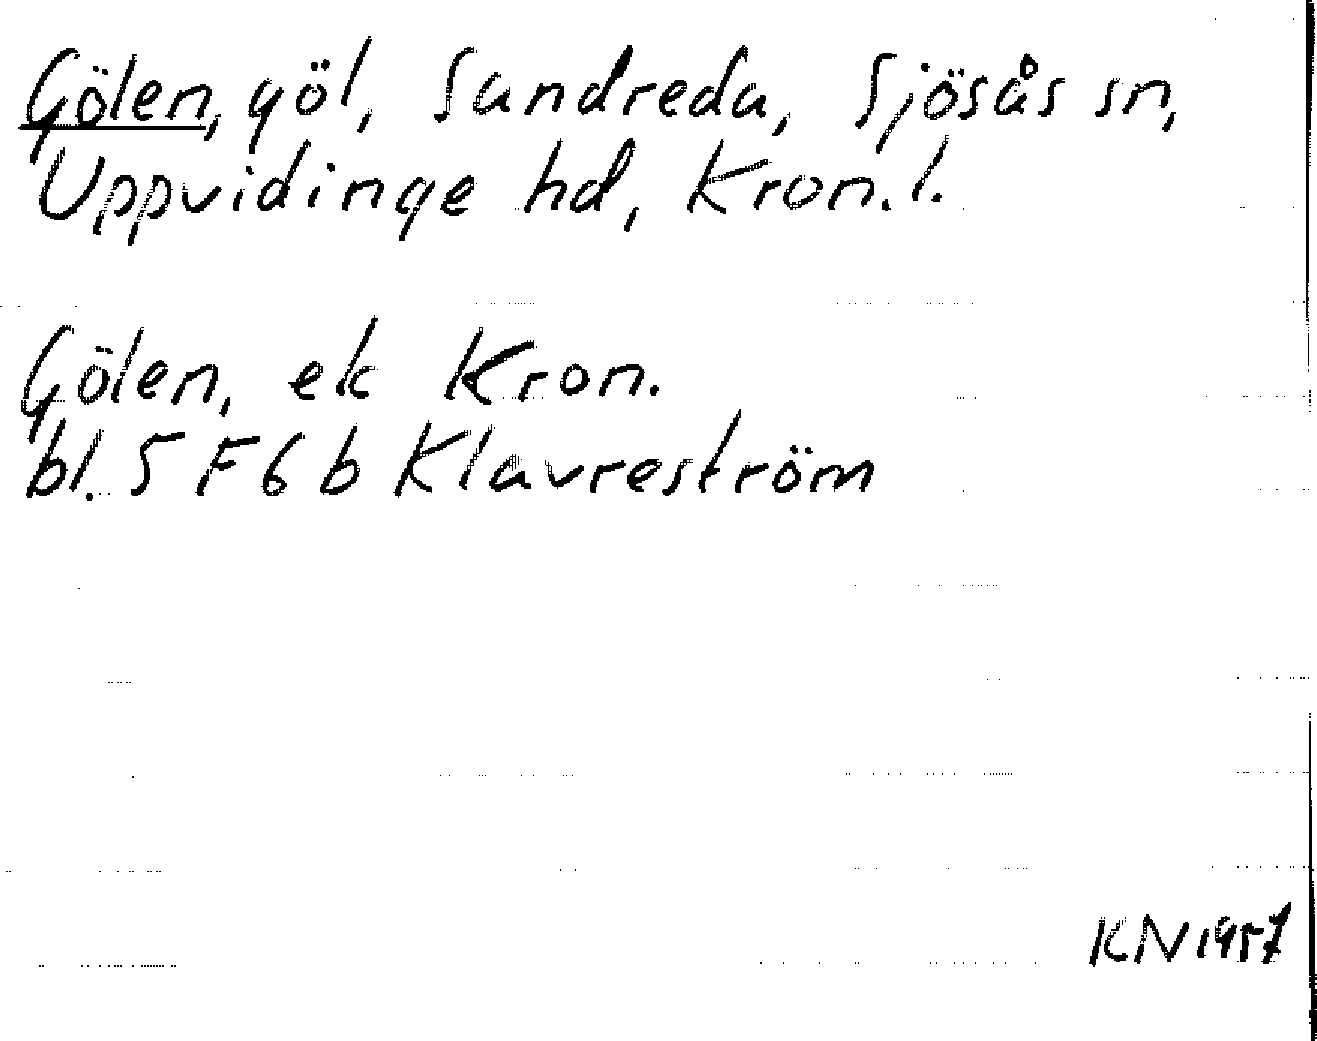 Gölen, göl, Sandreda, Sjösås sn,
Uppvidinge hd, Kron. l.
Gölen, ek Kron.
bl. 5 F 6 b Klavreström
KN 1957